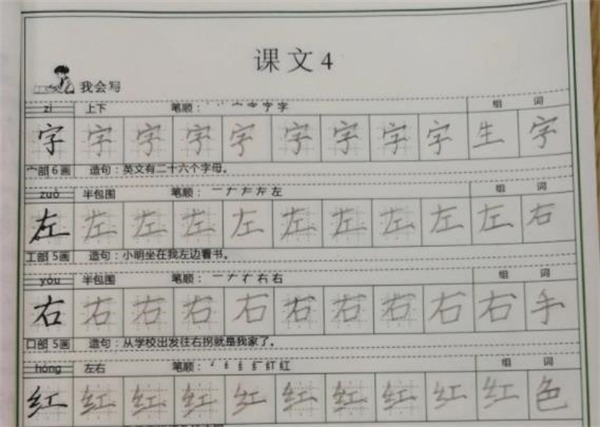 课文4
我会写
zì 上下 笔顺： 字 组 词
字 字 字 字 字 字 字 字 字 生 字
宀部6画 造句：英文有二十六个字母。
zuǒ 半包围 笔顺： 左 组 词
左 左 左 左 左 左 左 左 左 左 右
工部5画 造句：小明坐在我左边看书。
yòu 半包围 笔顺： 右 组 词
右 右 右 右 右 右 右 右 右 右 手
口部5画 造句：从学校出发往右拐就是我家了。
hóng 左右 笔顺： 红 组 词
红 红 红 红 红 红 红 红 红 红 色